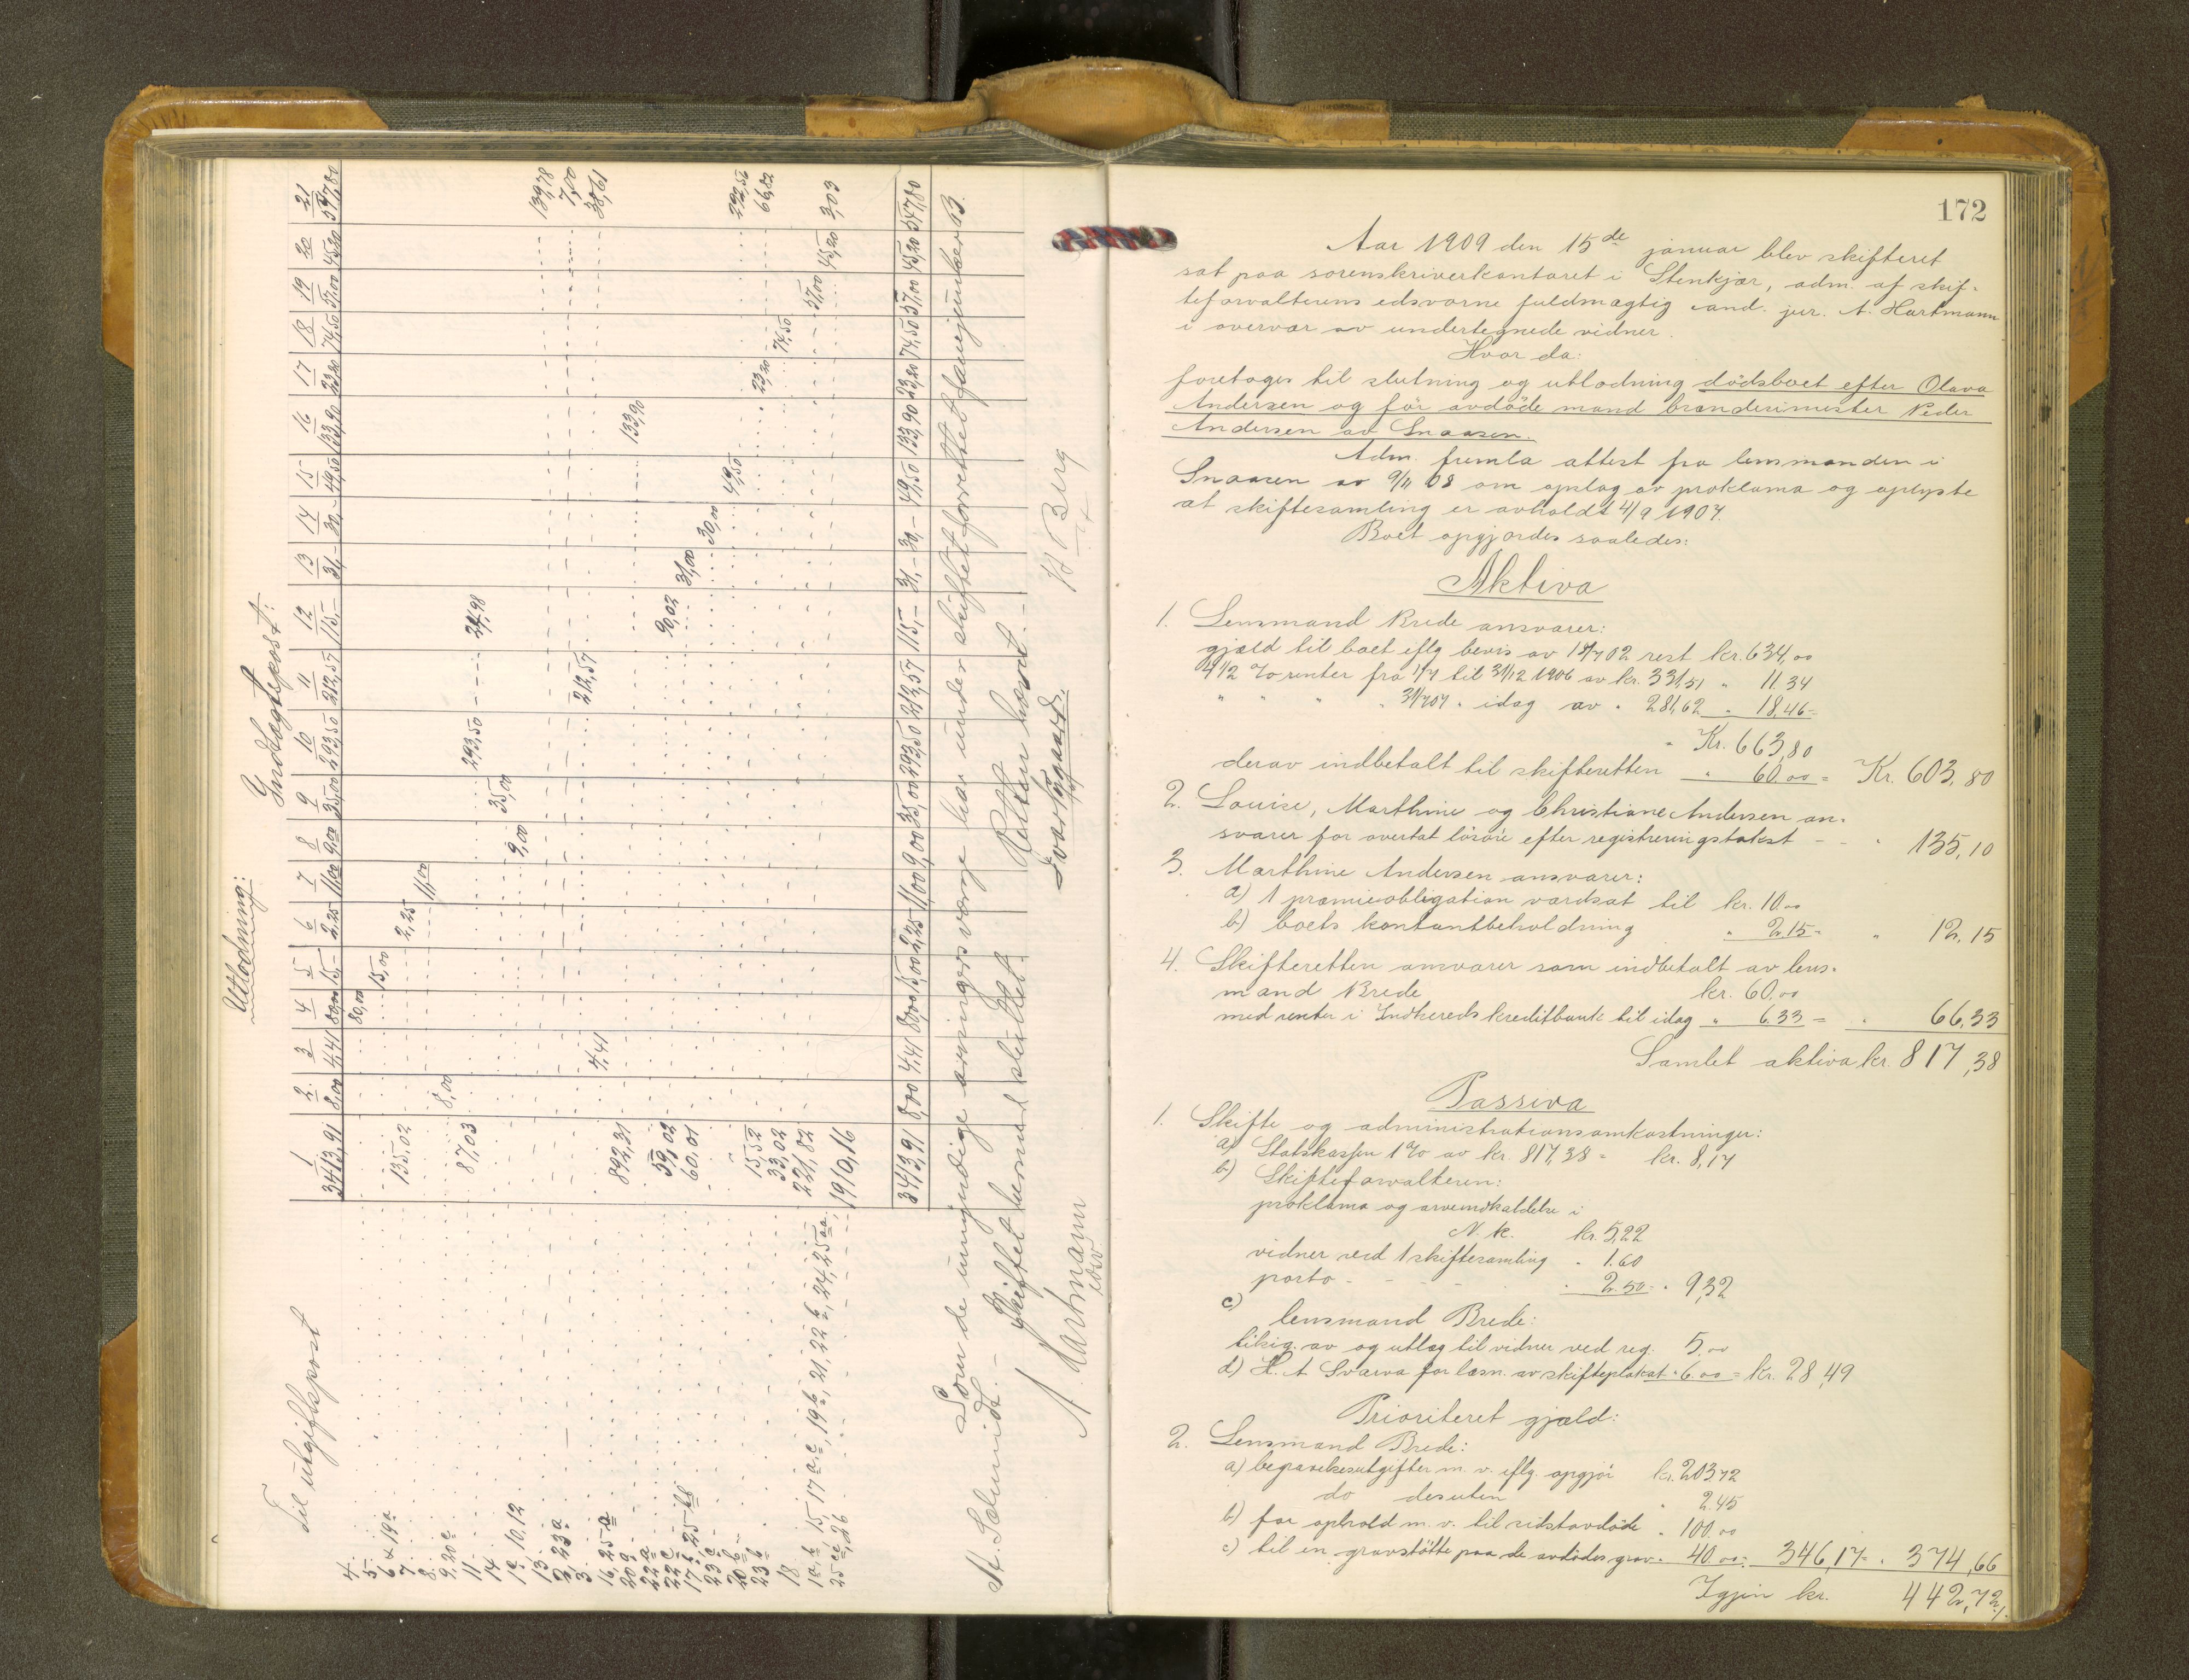 Utlodning:
Indtægtspost:
Til utgiftspost
1 2 3 4 5 6 7 8 9 10 11 12 13 14 15 16 17 18 19 20 21
3413,91 8,00 4,41 80,00 15,- 2,25 11,00 9,00 35,00 293,50 212,57 115,- 31,- 30,- 49,50 133,90 23,20 74,50 57,00 45,20 547,80
4. 80,00
5. 15,00
6 & 19a 135,02 2,25
7. 11,00
8. 8,00
9, 20c 87,03 293,50 24,98
11. 35,00
14. 9,00
1a 10, 12 139,78
13. 7,00
2, 23a 4,41 212,57 38,61
3. 892,31
16, 25a 133,90
20a 59,02 90,02
22a 60,01 31,00
22c 30,00
17b, 25bb 15,52 49,50 292,56
23c 33,02 23,20 66,82
20b 221,82 74,50
23b 57,00
18. 45,20 3,03
1a,b 15, 17a,c, 19b, 21, 22b, 24, 25aa,
25cc, 26 1910,16
3413,91 8,00 4,41 80,00 15,00 2,25 11,00 9,00 35,00 293,50 212,57 115,- 31,- 30,- 49,50 133,90 23,20 74,50 57,00 45,20 547,80
Som de umyndige arvingers værge har under skiftet forrettet fanejunker B.
M. Schmidt. - Skiftet hermed sluttet.
Retten hævet. -
A Hartmann
edsv
Ivar Nygaard.
H Berg
172
Aar 1909 den 15de januar blev skifteret
sat paa sorenskriverkontoret i Stenkjær, adm. af skif-
teforvalterens edsvorne fuldmægtig cand. jur. A. Hartmann
i overvær av undertegnede vidner.
Hvor da:
foretoges til slutning og utlodning dödsboet efter Olava
Andersen og för avdöde mand brænderimester Peder
Andersen av Snaasen.
Adm. fremla attest fra lensmanden i
Snaasen av 9/11 08 om opslag av proklama og oplyste
at skiftesamling er avholdt 4/9 1907.
Boet opgjordes saaledes:
Aktiva
1. Lensmand Brede ansvarer:
gjæld til boet iflg bevis av 18/7 02 rest kr. 634,00
4 1/2 % renter fra 1/7 til 31/12 1906 av kr. 331,51 " 11.34
" " " " 31/7 07 " idag av " 281,62 " 18,46 =
" Kr. 663,80
derav indbetalt til skifteretten " 60.00 = Kr. 603,80
2. Louise, Marthine og Christiane Andersen an-
svarer for overtat lösöre efter registreringstakst - - " 135,10
3. Marthine Andersen ansvarer:
a) 1 præmieobligation værdsat til kr. 10.00
b) boets kontantbeholdning " 2.15 = " 12,15
4. Skifteretten ansvarer som indbetalt av lens-
mand Brede kr. 60.00
med renter i Indhereds kreditbank til idag " 6.33 = " 66,33
Samlet aktiva kr. 817,38
Passiva
1. Skifte og administrationsomkostninger:
a) Statskassen 1 % av kr. 817,38 = kr. 8,17
b) Skifteforvalteren:
proklama og arveindkaldelse i
N. k. kr. 5,22
vidner ved 1 skiftesamling " 1.60
porto - - - - " 2.50 = " 9,32
c) lensmand Brede:
tilsig. av og utlæg til vidner ved reg. 5.00
d) H. A Svarva for læsn. av skifteplakat " 6.00 = kr. 28,49
Prioriteret gjæld:
2. Lensmand Brede:
a) begravelsesutgifter m. v. iflg. opgjör kr. 203.72
do desuten " 2.45
b) for ophold m. v. til sidstavdöde " 100.00
c) til en gravstötte paa de avdödes grav " 40.00 = 346,17 = " 374,66
Igjen kr. 442,72